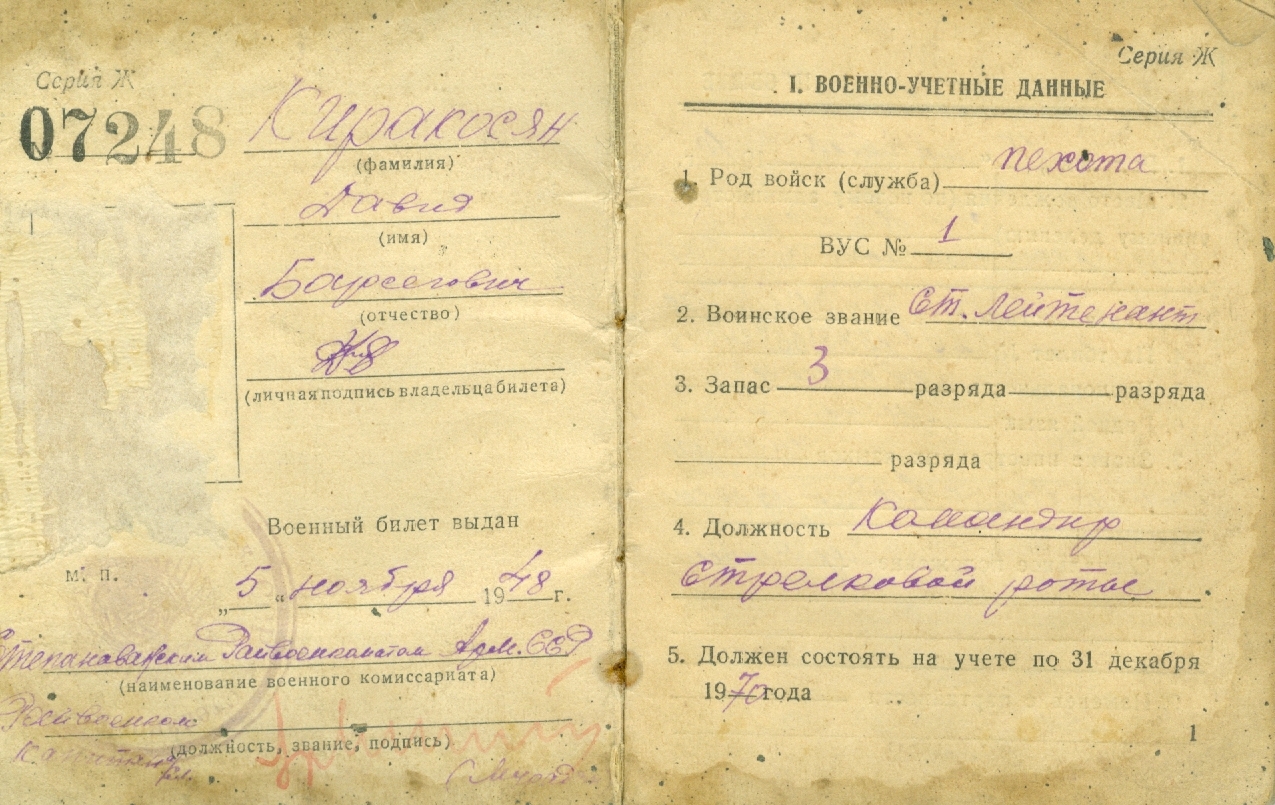 Серия Ж
07248
Киракосян
(фамилия)
Давид
(имя)
Барсегович
(отчество)
(личная подпись владельца билета)
Военный билет выдан
м. п.
„5“ ноября 1948 г.
Степанаванским Райвоенкоматом Арм. ССР
(наименование военного комиссариата)
Райвоенком
(должность, звание, подпись)
капитан
Серия Ж
I. ВОЕННО-УЧЕТНЫЕ ДАННЫЕ
1. Род войск (служба) пехота
ВУС № 1
2. Воинское звание Ст. лейтенант
3. Запас 3 разряда разряда
разряда
4. Должность Командир
стрелковой роты
5. Должен состоять на учете по 31 декабря
1970 года
1